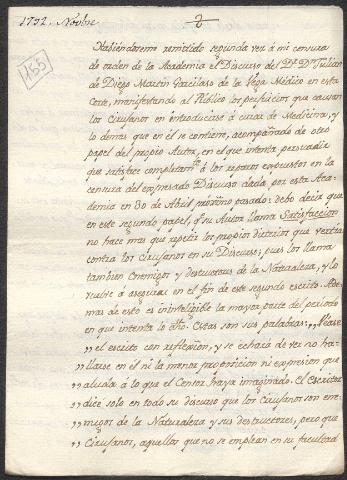 1792. Novbre.
155
Habiendoseme remitido segunda vez á mi censura
de orden de la Academia el Discurso del Dr. Dn. Julian
de Diego Martin Garcilaso de la Vega Médico en esta
Corte, manifestando al Público los perjuicios que causan
los Cirujanos en introducirse á curar de Medicina, y
lo demás que en él se contiene, acompañado de otro
papel del propio Autor, en el que intenta persuadir
que satisface completamte. á los reparos expuestos en la
censura del expresado Discurso dada por esta Aca-
demia en 30 de Abril proximo pasado: debo decir que
en este segundo papel, q.e su Autor llama Satisfaccion
no hace mas que repetir los propios dicterios que vertia
contra los Cirujanos en su Discurso; pues los llama
tambien Enemigos y destructores de la Naturaleza, y lo
vuelve á asegurar en el fin de este segundo escrito. Ade-
mas de esto es ininteligible la mayor parte del periodo
en que intenta lo dho. Estas son sus palabras: „Léase
„ el escrito con reflexion, y se echará de ver no ha-
„ llarse en él ni la menor proposicion ni expresion que
„ aluda á lo que el Censor haya imaginado. El Escritor
„ dice solo en todo su discurso que los Cirujanos son ene-
„ migos de la Naturaleza y sus destructores, pero que
„ Cirujanos, aquellos que no se emplean en su facultad